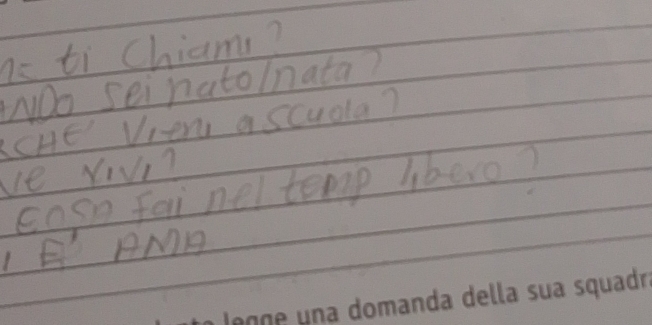 ti Chiami?
NDO sei nato/nata?
CHE' Vieni a scuola?
ve vivi?
cosa fai nel temp libero?
I E' AMA
legge una domanda della sua squadra